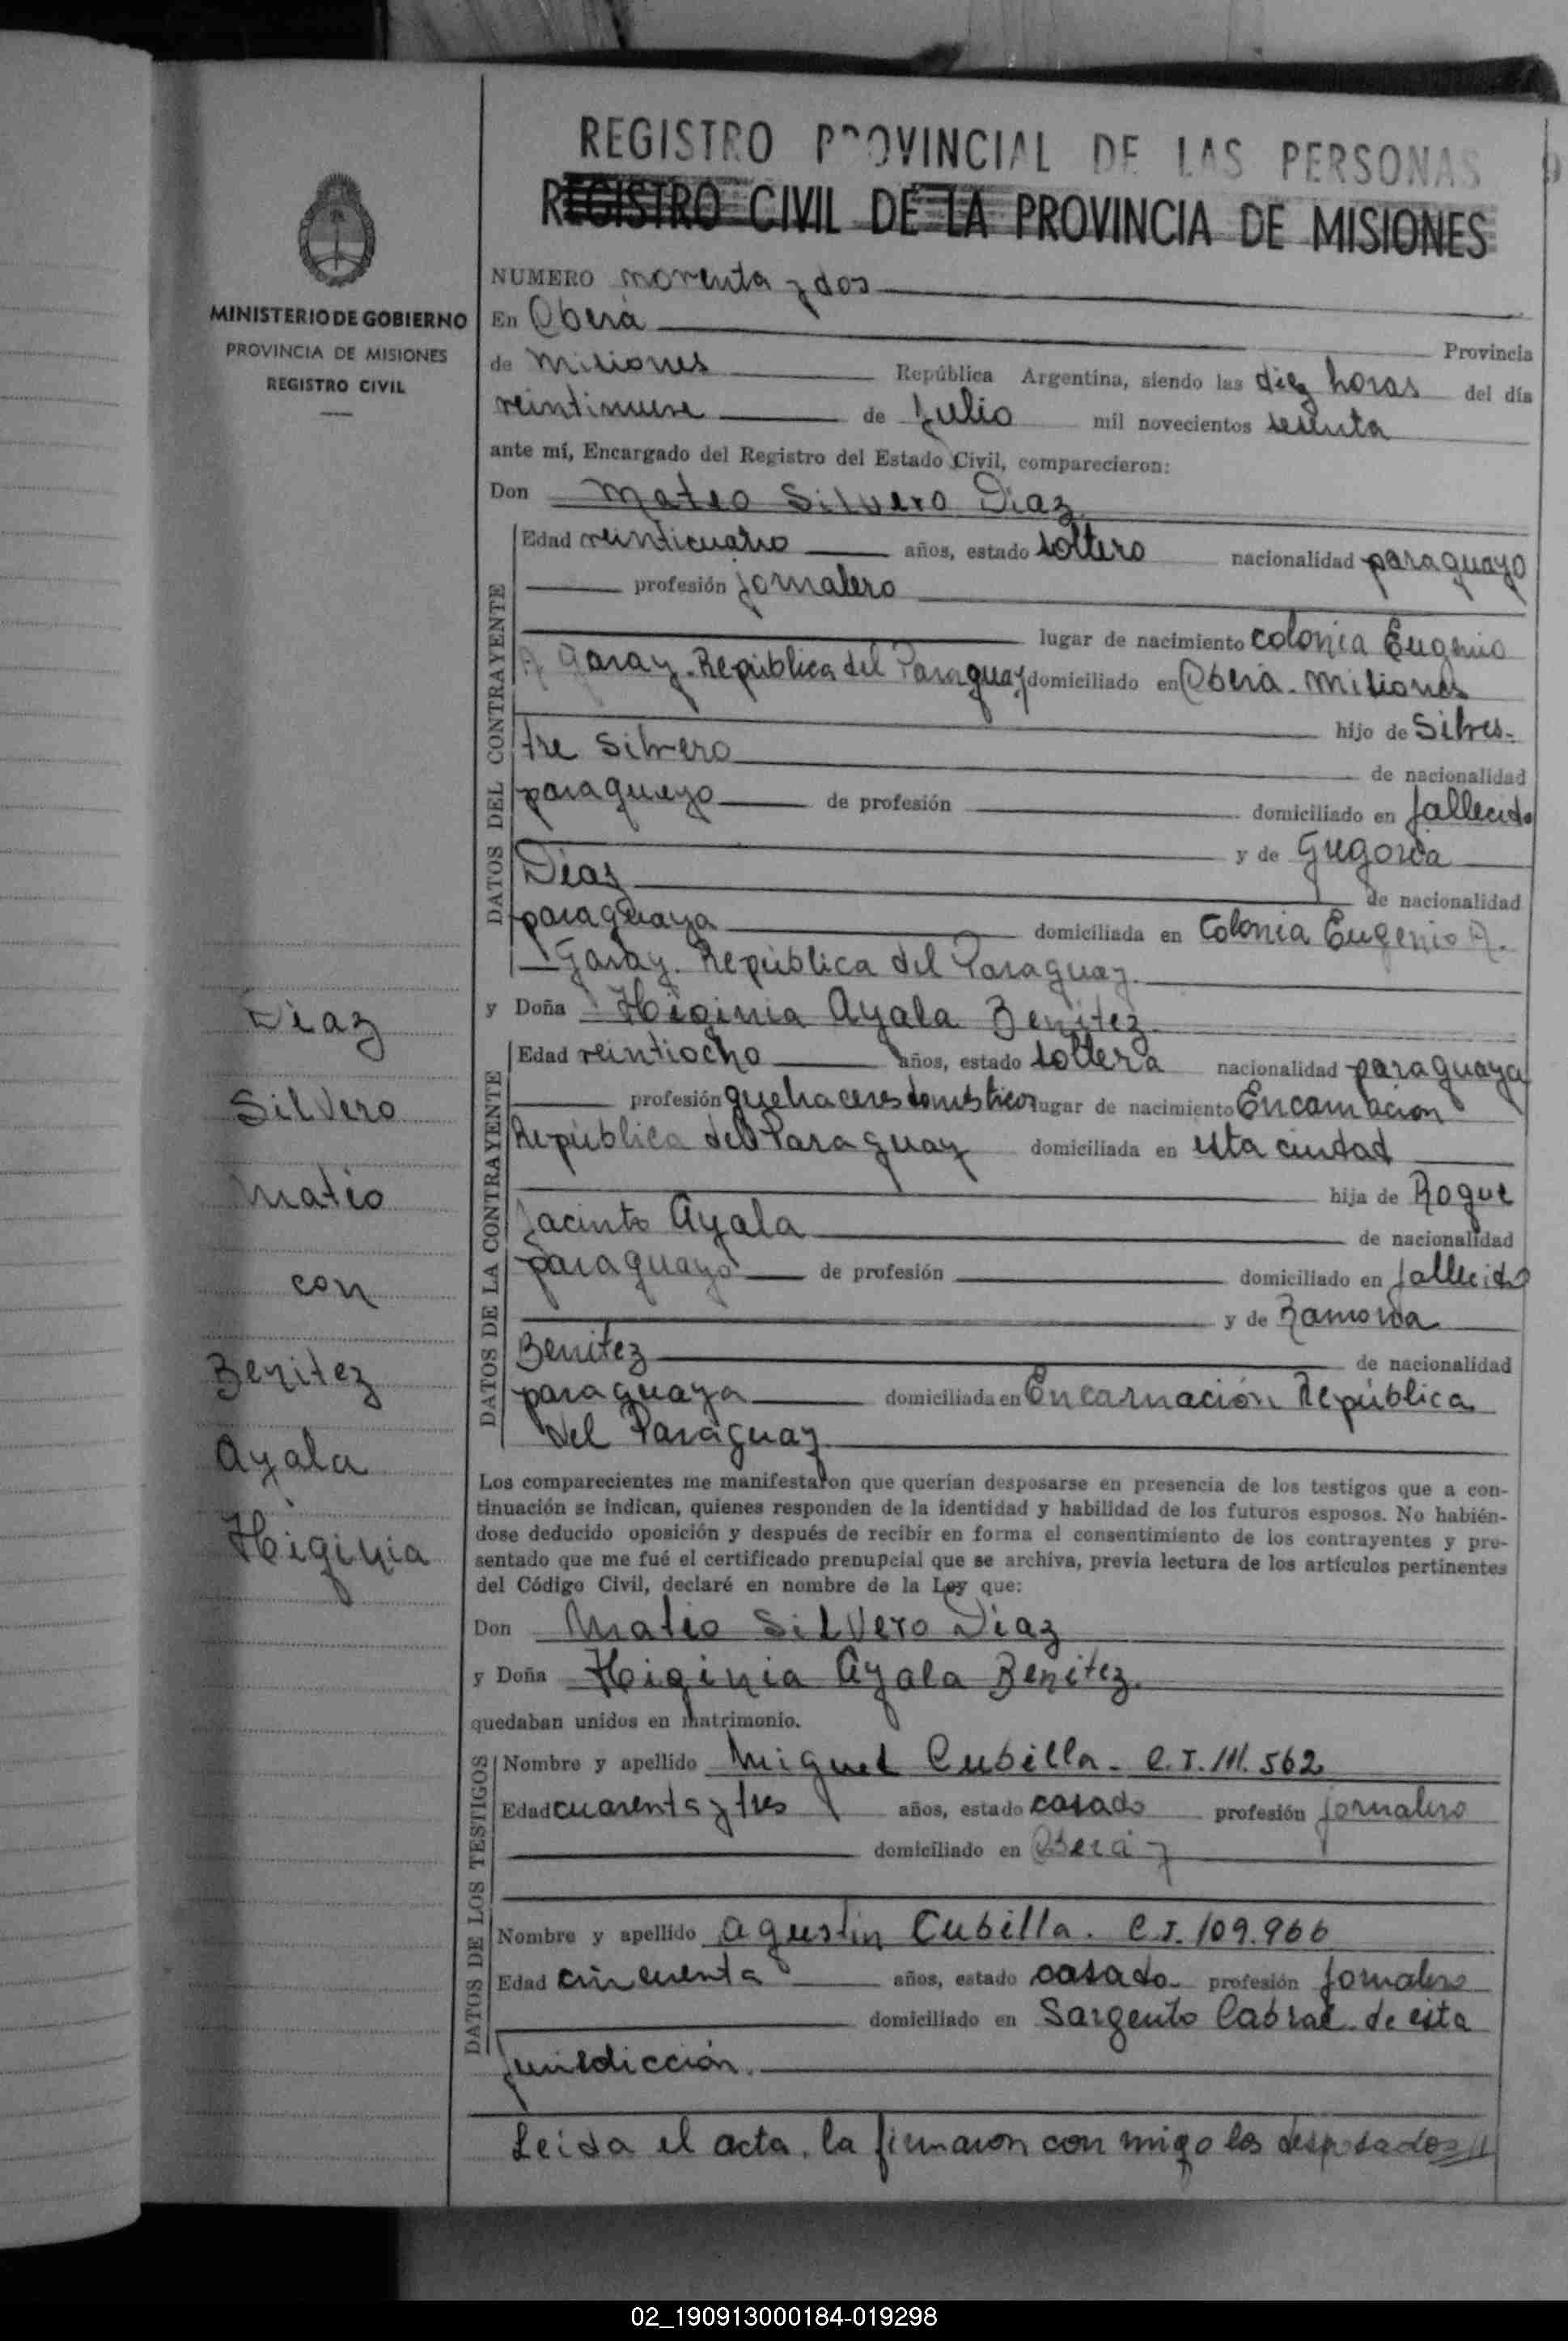 REGISTRO PROVINCIAL DE LAS PERSONAS
REGISTRO CIVIL DE LA PROVINCIA DE MISIONES
MINISTERIO DE GOBIERNO
PROVINCIA DE MISIONES
REGISTRO CIVIL
NUMERO noventa y dos
En Oberá
Provincia
de Misiones República Argentina, siendo las diez horas del día
veintinueve de Julio mil novecientos sesenta
ante mí, Encargado del Registro del Estado Civil, comparecieron:
Don Mateo Silvero Diaz
DATOS DEL CONTRAYENTE
Edad veinticuatro años, estado soltero nacionalidad paraguayo
profesión jornalero
lugar de nacimiento colonia Eugenio
A Garay. República del Paraguay domiciliado en Oberá. Misiones
hijo de Silves-
tre Silvero
de nacionalidad
paraguayo de profesión domiciliado en fallecido
y de Gregoria
Diaz
de nacionalidad
paraguaya domiciliada en Colonia Eugenio A.
Garay. República del Paraguay
y Doña Higinia Ayala Benitez
DATOS DE LA CONTRAYENTE
Edad veintiocho años, estado soltera nacionalidad paraguaya
profesión quehaceres domésticos lugar de nacimiento Encarnación
República del Paraguay domiciliada en esta ciudad
hija de Roque
Jacinto Ayala
de nacionalidad
paraguayo de profesión domiciliado en fallecido
y de Ramona
Benitez
de nacionalidad
paraguaya domiciliada en Encarnación República
del Paraguay
Diaz
Silvero
Mateo
con
Benitez
Ayala
Higinia
Los comparecientes me manifestaron que querían desposarse en presencia de los testigos que a con-
tinuación se indican, quienes responden de la identidad y habilidad de los futuros esposos. No habién-
dose deducido oposición y después de recibir en forma el consentimiento de los contrayentes y pre-
sentado que me fué el certificado prenupcial que se archiva, previa lectura de los artículos pertinentes
del Código Civil, declaré en nombre de la Ley que:
Don Mateo Silvero Diaz
y Doña Higinia Ayala Benitez.
quedaban unidos en matrimonio.
DATOS DE LOS TESTIGOS
Nombre y apellido Miguel Cubilla. C.I. 111.562
Edad cuarenta y tres años, estado casado profesión jornalero
domiciliado en Oberá y
Nombre y apellido Agustin Cubilla. C.I. 109.966
Edad cincuenta años, estado casado profesión jornalero
domiciliado en Sargento Cabral de esta
jurisdicción.
Leida el acta, la firmaron con migo los desposados
02_190913000184-019298